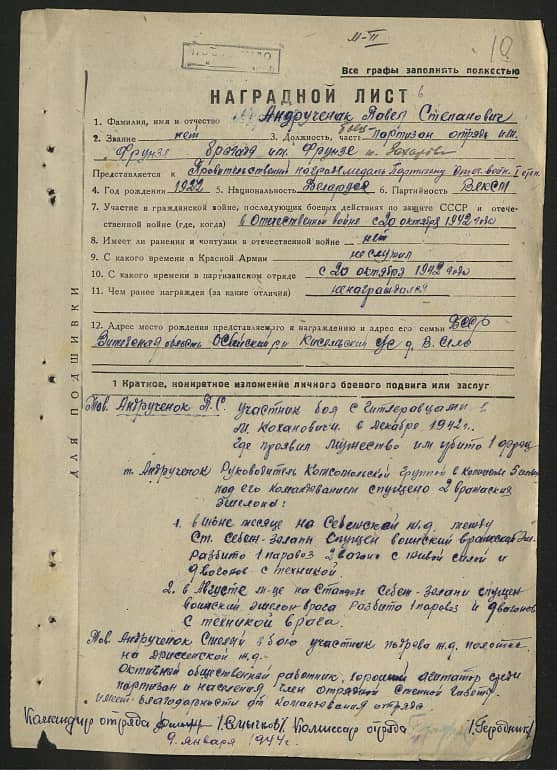 М-П
19
Все графы заполнять полностью
НАГРАДНОЙ ЛИСТ
1. Фамилия, имя и отчество Андрученок Павел Степанович
2. Звание нет 3. Должность, часть боец партизан отряд им.
Фрунзе бригада им. Фрунзе т. Захарова
Представляется к Правительственной награде медаль Партизану Отеч. войн. I степ.
4. Год рождения 1922 5. Национальность Беларус 6. Партийность ВЛКСМ
7. Участие в гражданской войне, последующих боевых действиях по защите СССР и отече-
ственной войне (где, когда) в Отечественной войне с 20 октября 1942 года
8. Имеет ли ранения и контузии в отечественной войне нет
9. С какого времени в Красной Армии не служил
10. С какого времени в партизанском отряде с 20 октября 1942 года
11. Чем ранее награжден (за какие отличия) ненаграждался
12. Адрес место рождения представляемого к награждению и адрес его семьи БССР
Витебская область Освейский р-н Кисельский с/с д. В. Село
ДЛЯ ПОДШИВКИ
1 Краткое, конкретное изложение личного боевого подвига или заслуг
Тов. Андрученок П.С. участник боя с Гитлеравцами в
м. Кохановичи в Декабре 1942 г.
где проявил мужество им убито 1 фриц
т. Андрученок Руководитель Комсомольской группой в количестве 5
под его командованием спущено 2 вражеских
эшелона:
1. в июне месяце на Себежской ж.д. между
Ст. Себеж-Зелапи Спущен воинский вражеский
Разбито 1 паровоз 2 вагона с живой силой и
вагонов с техникой
2. в Августе м-це на Себеж-Зелапи спущен
воинский эшелон врага разбито 1 паровоз и вагонов
с техникой врага.
Тов. Андрученок участник подрыва ж.д. полотна
на Дрисенской ж.д.
Активной общественной работник, хороший агитатор среди
партизан и населения член отрядной Стенной Газеты.
имеет благодарности от командования отряда
Командир отряда /Смычков/. Комиссар отряда /Геродник/
9. января 1944 г.